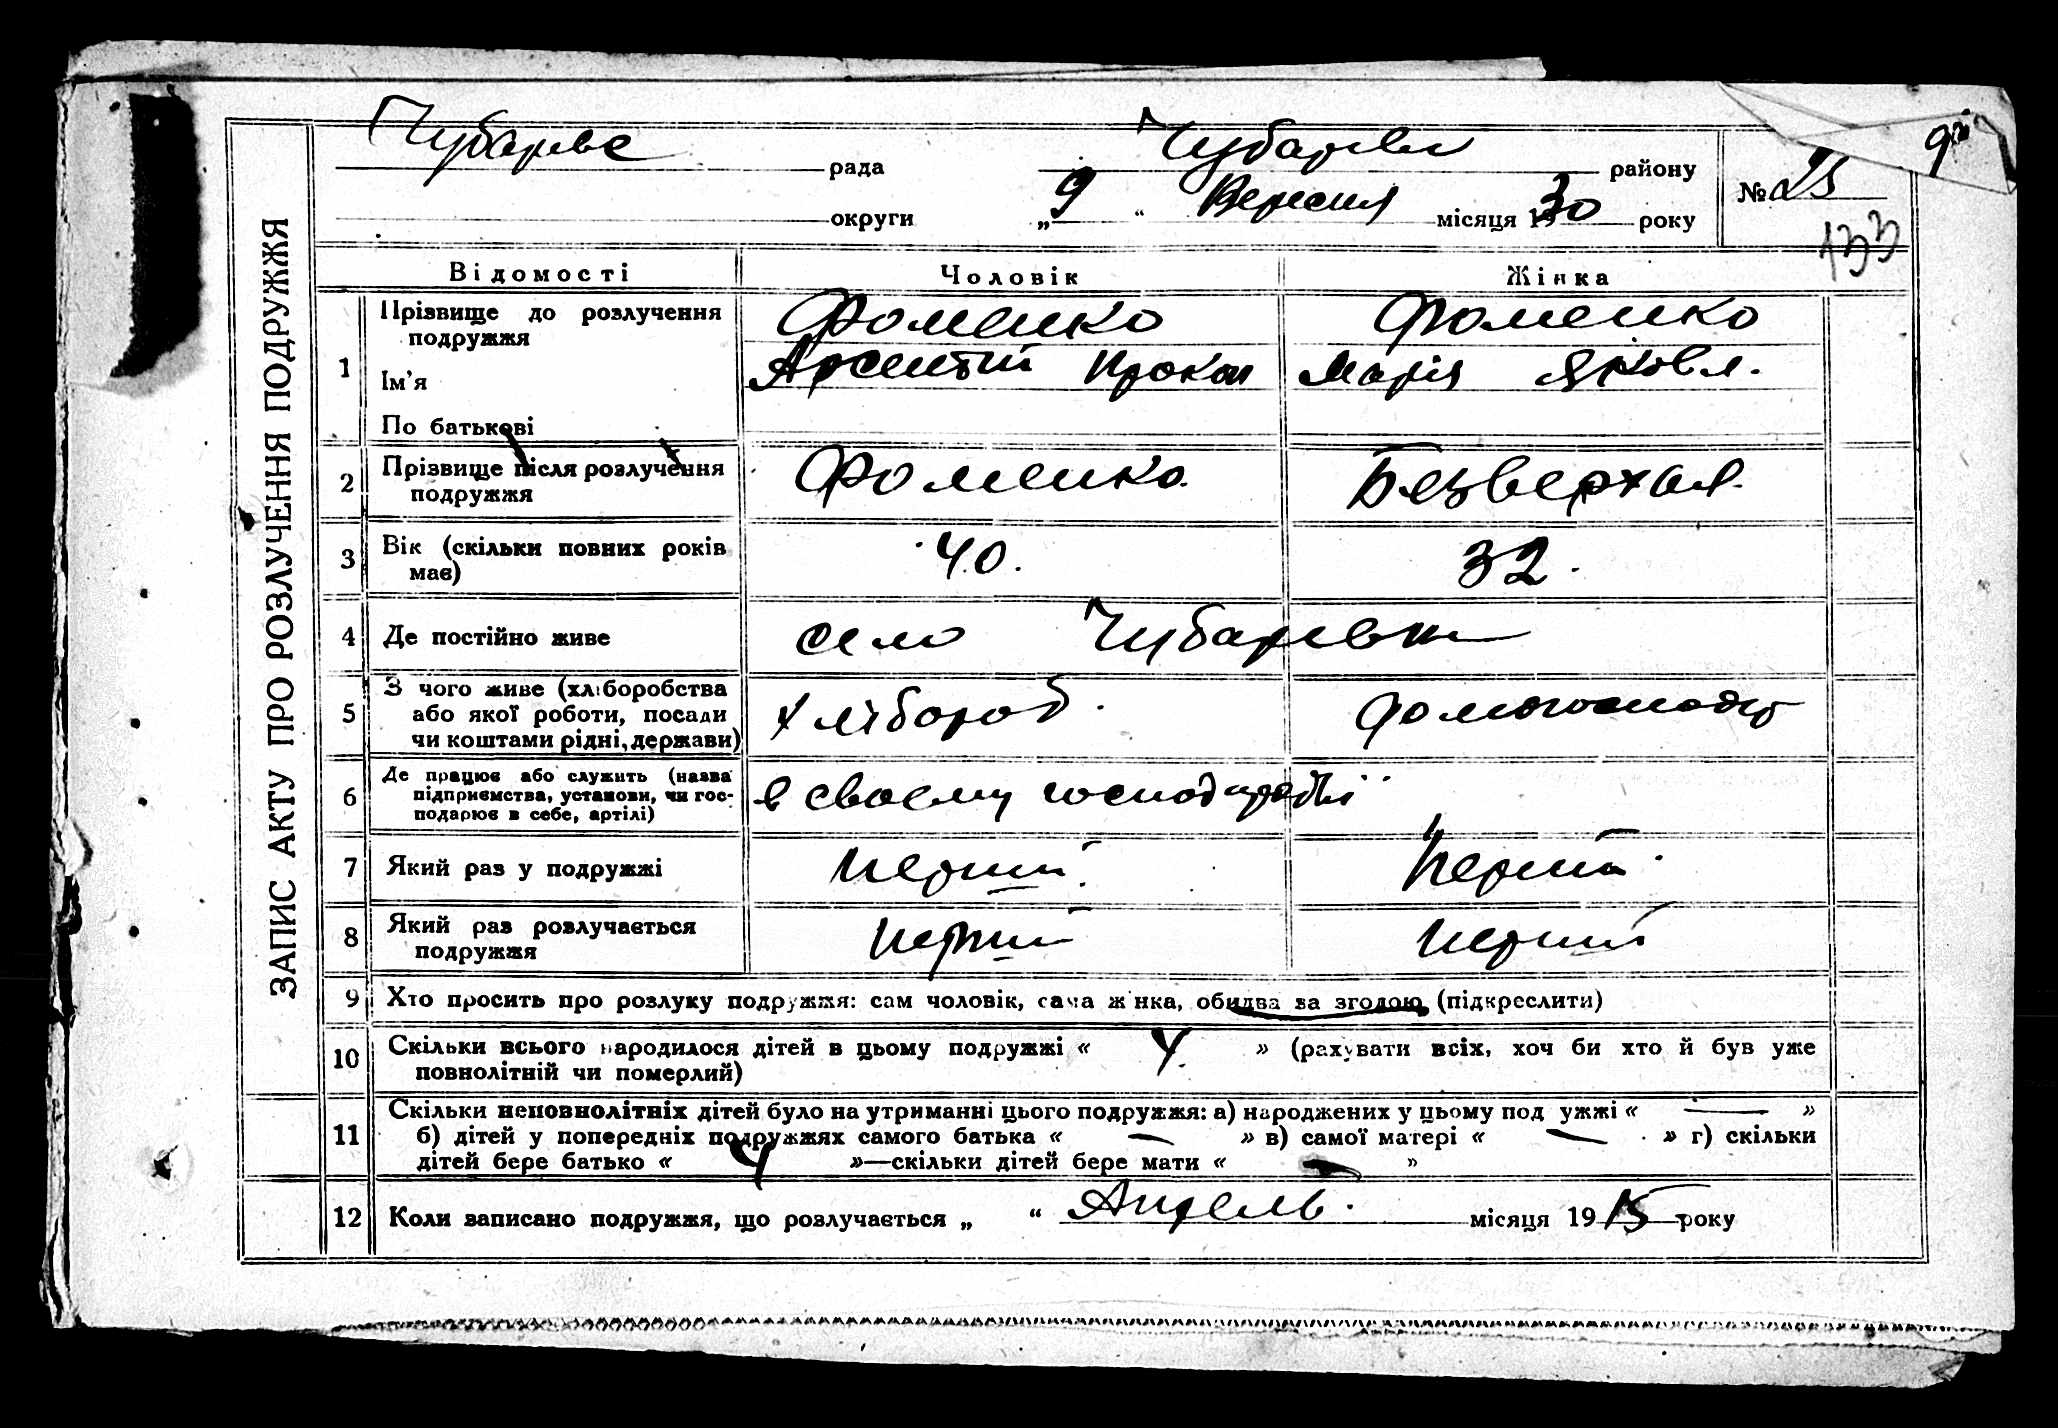 ЗАПИС АКТУ ПРО РОЗЛУЧЕННЯ ПОДРУЖЖЯ
Чубарівс рада Чубарівс району № 25
округи „9“ Вересня місяця 1930 року
133
Відомості Чоловік Жінка
1 Прізвище до розлучення подружжя Фоменко Фоменко
Ім'я Арсентій Прокоп Марія Яковл.
По батькові
2 Прізвище після розлучення подружжя Фоменко Безверхая
3 Вік (скільки повних років має) 40. 32.
4 Де постійно живе село Чубарівка
5 З чого живе (хліборобства або якої роботи, посади чи коштами рідні, держави) хлібороб.
6 Де працює або служить (назва підприємства, установи, чи господарює в себе, артілі) в своєму господарстві
7 Який раз у подружжі перший перший
8 Який раз розлучається подружжя перший перший
9 Хто просить про розлуку подружжя: сам чоловік, сама жінка, обидва за згодою (підкреслити)
10 Скільки всього народилося дітей в цьому подружжі « 4 » (рахувати всіх, хоч би хто й був уже
повнолітній чи померлий)
11 Скільки неповнолітніх дітей було на утриманні цього подружжя: а) народжених у цьому подружжі « — »
б) дітей у попередніх подружжях самого батька « — » в) самої матері « — » г) скільки
дітей бере батько « 4 »—скільки дітей бере мати « — »
12 Коли записано подружжя, що розлучається „ “ Апрель. місяця 1915 року